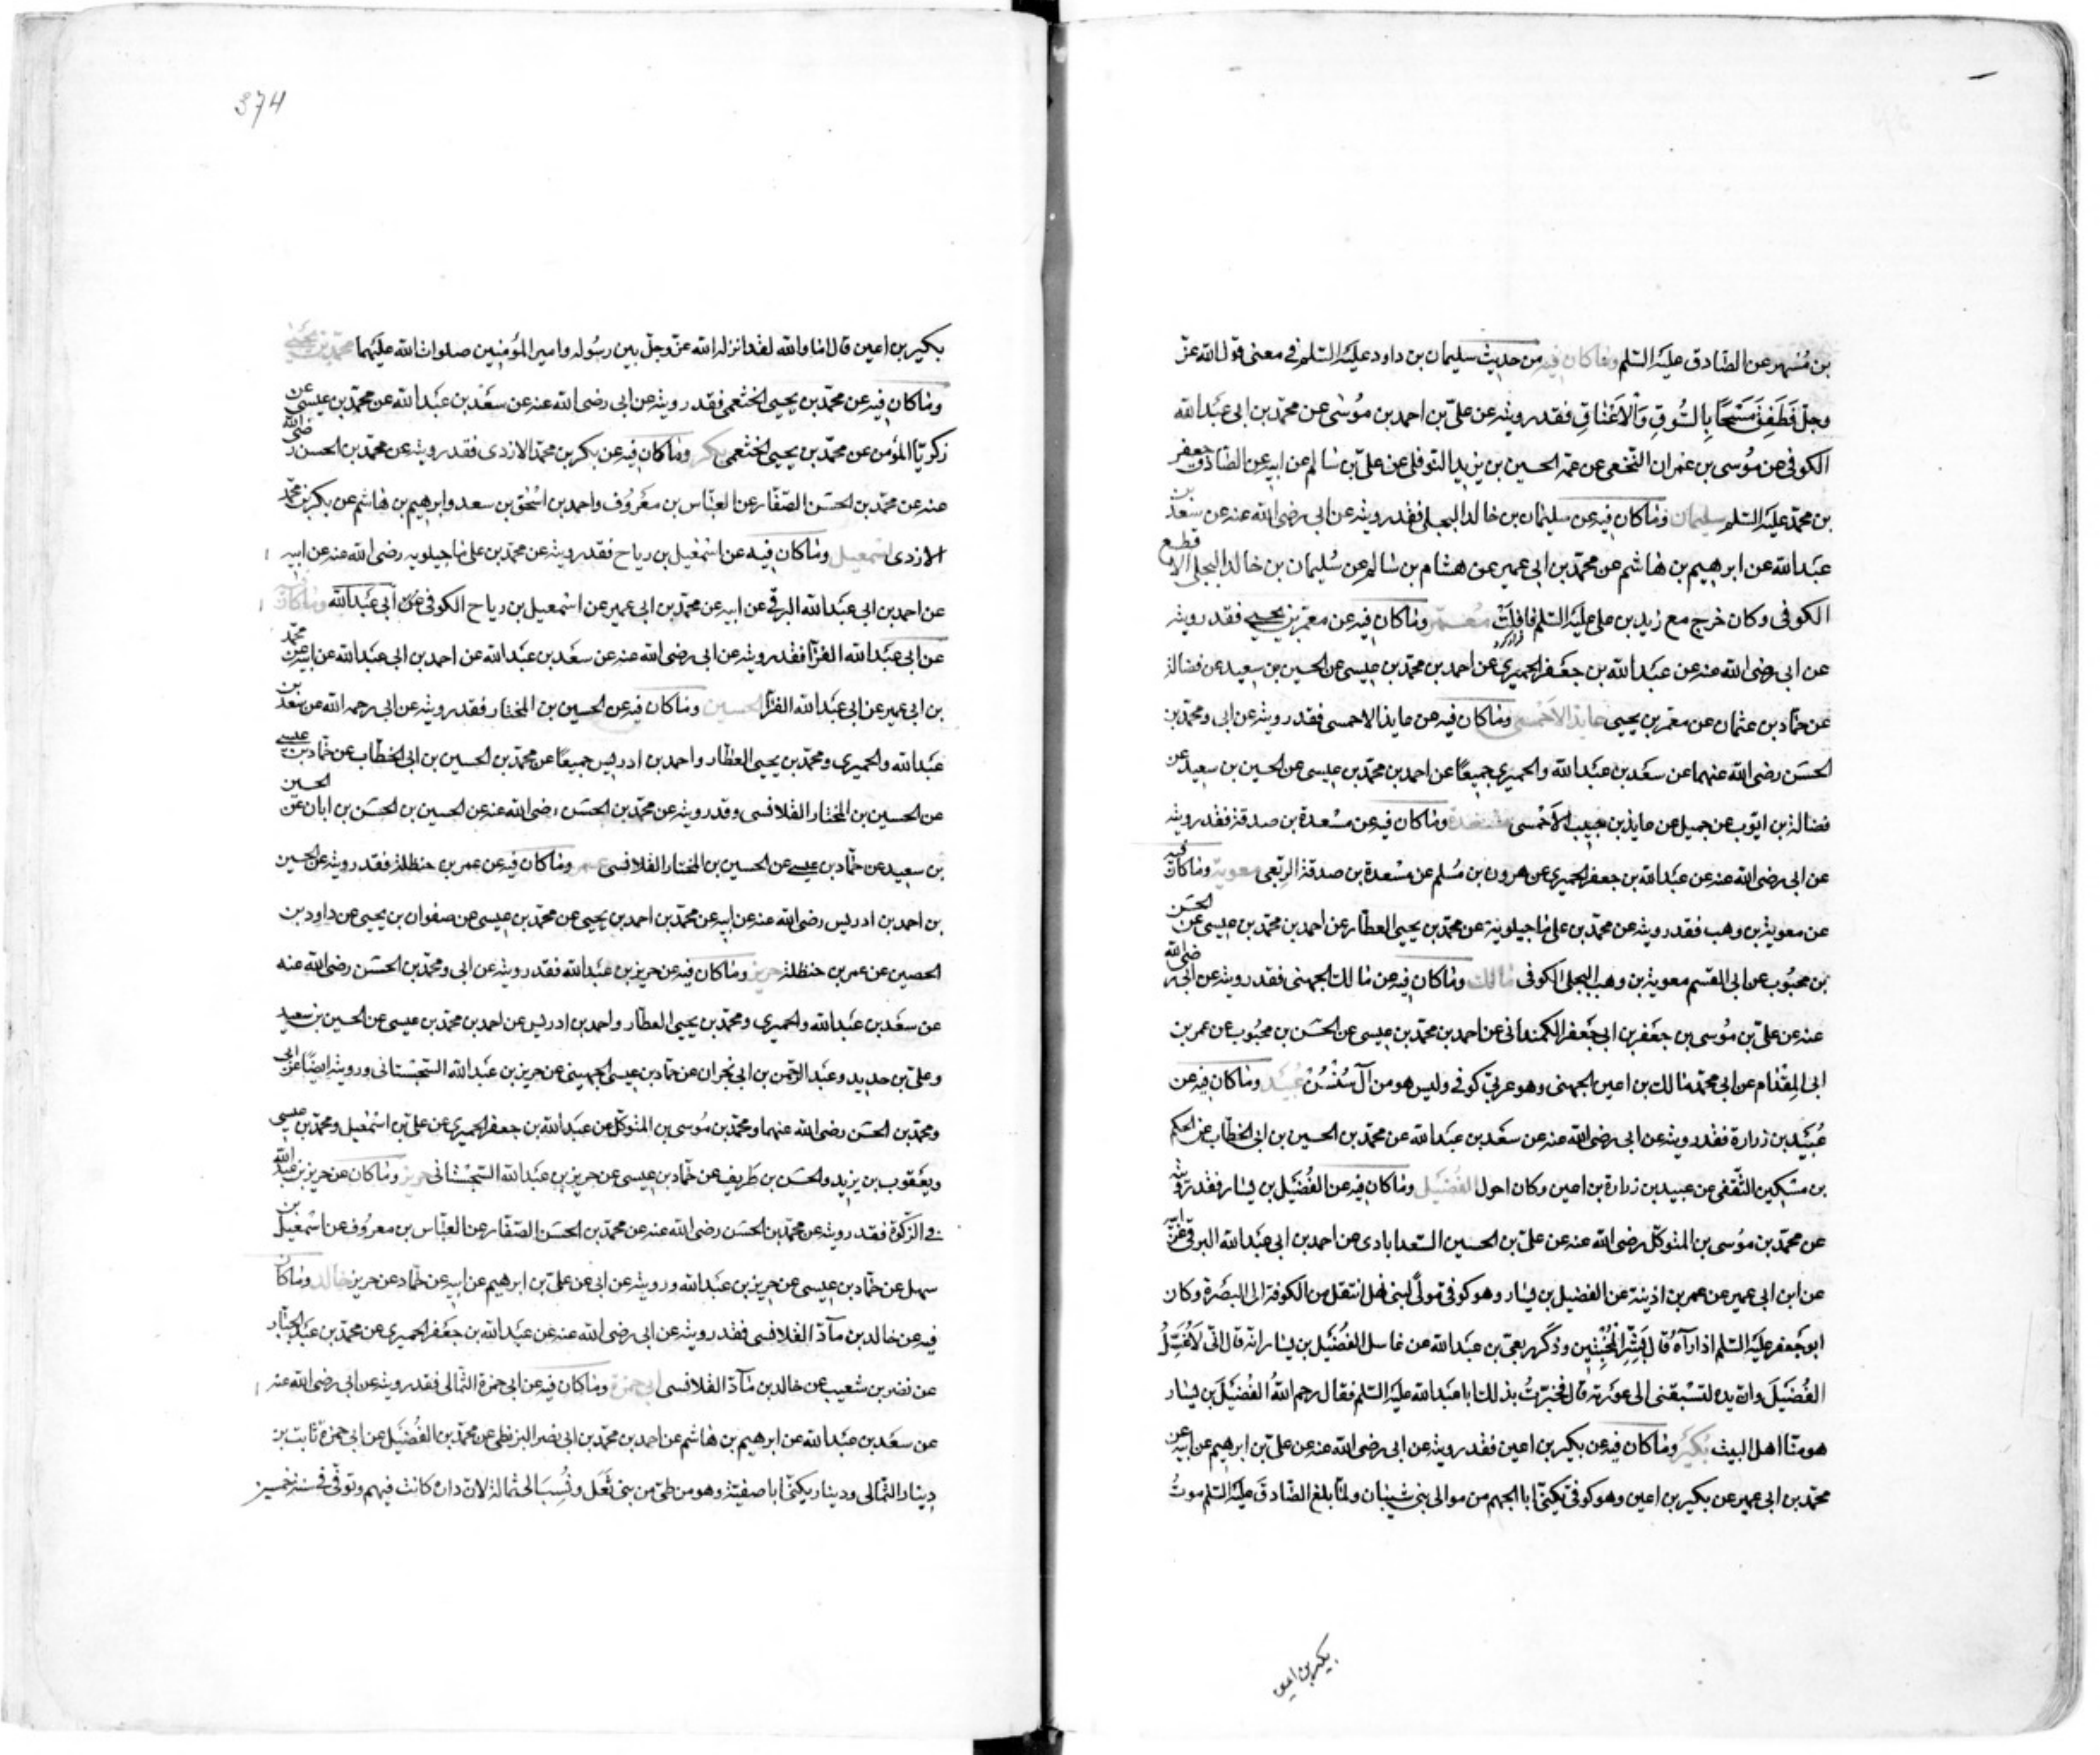 بن مُسْهر عن الصّادق عليه السّلم وما كان فيه من حديث سليمان بن داود عليه السّلم في معنى قول الله عزّ
وجلّ فَطَفِقَ مَسْحًا بِالسُّوقِ وَالْاَعْنَاقِ فقد رويته عن علىّ بن احمد بن مُوسٰى عن محمّد بن ابى عبد الله
الكوفى عن مُوسى بن عمران النّخعى عن عمّه الحسين بن يزيد النوفلى عن علىّ بن سالم عن ابيه عن الصّادق جعفر
بن محمّد عليه السّلم سليمان وما كان فيه عن سليمان بن خالد البجلى فقد رويته عن ابى رضى الله عنه عن سعد بن
عبد الله عن ابرهيم بن هاشم عن محمّد بن ابى عمير عن هشام بن سالم عن سُليمان بن خالد البجلى الاقطع
الكوفى وكان خرج مع زيد بن على عليه السّلم فافلت معمّر وما كان فيه عن معمّر بن يحيى فقد رويته
عن ابى رضى الله عنه عن عبد الله بن جعفر الحميرى عن احمد بن محمّد بن عيسى عن الحسين بن سعيد عن فضالة
عن حمّاد بن عثمان عن معمّر بن يحيى عايذ الاحمسى وما كان فيه عن عايذ الاحمسى فقد رويته عن ابى ومحمّد بن
الحسن رضى الله عنهما عن سعد بن عبد الله والحميرى جميعًا عن احمد بن محمّد بن عيسى عن الحسين بن سعيد عن
فضالة بن ايّوب عن جميل عن عايذ بن حبيب الاَحْمسى مسعدة وما كان فيه عن مسْعدة بن صدقة فقد رويته
عن ابى رضى الله عنه عن عبد الله بن جعفر الحميرى عن هرون بن مُسلم عن مسْعدة بن صدقة الربعى معوية وما كان فيه
عن معوية بن وهب فقد رويته عن محمّد بن على ماجيلويه عن محمّد بن يحيى العطّار عن احمد بن محمّد بن عيسى عن الحسَن
بن محبُوب عن ابى القسم معوية بن وهب البجلى الكوفى مالك وما كان فيه عن مالك الجهنى فقد رويته عن ابى رضى الله
عنه عن علىّ بن مُوسى بن جعفر بن ابى جعفر الكمندانى عن احمد بن محمّد بن عيسى عن الحسَن بن محبُوب عن عمر بن
ابى المِقْدام عن ابى محمّد مالك بن اعين الجهنى وهو عربىّ كوفى وليس هو من آل سُنْسُنْ عُبَيْد وما كان فيه عن
عُبَيْد بن زرارة فقد رويته عن ابى رضى الله عنه عن سعد بن عبد الله عن محمّد بن الحسين بن ابى الخطّاب عن الحكم
بن مسْكين الثّقفى عن عبيد بن زرارة بن اعين وكان احول الفُضَيْل وما كان فيه عن الفُضَيْل بن يسار فقد رويته
عن محمّد بن مُوسى بن المتوكّل رضى الله عنه عن علىّ بن الحسين السّعدابادى عن احمد بن ابى عبد الله البرقى عن ابيه
عن ابن ابى عمير عن عمر بن اذينة عن الفضيل بن يسار وهو كوفى مولًى لبنى نهل انتقل من الكوفة الى البصْرة وكان
ابو جعفر عليه السّلم اذا رآهُ قال بَشِّرِ الْمُخْبِتِين وذكر ربعىّ بن عبد الله عن غاسل الفُضَيْل بن يسار انّه قال انّى لَاُغَسِّلُ
الفُضَيْلَ وانّ يده لتسْبقنى الى عورته قال فخبّرتُ بذلك ابا عبد الله عليه السّلم فقال رحم اللهُ الفُضَيْلَ بن يسار
هو منّا اهل البيت بُكَيْر وما كان فيه عن بكير بن اعين فقد رويته عن ابى رضى الله عنه عن علىّ بن ابرهيم عن ابيه عن
محمّد بن ابى عمير عن بكير بن اعين وهو كوفى يكنّى ابا الجهم من موالى بنى شيبان ولمّا بلغ الصّادقَ عليه السّلم موتُ
بكير بن اعين
374
بكير بن اعين قال اما والله لقد انزله الله عزّ وجلّ بين رسُوله وامير المؤمنين صلوات الله عليهما محمّد بن يحيى
وما كان فيه عن محمّد بن يحيى الخثعمى فقد رويته عن ابى رضى الله عنه عن سعد بن عبد الله عن محمّد بن عيسى عن
زكريّا المؤمن عن محمّد بن يحيى الخثعمى بكر وما كان فيه عن بكر بن محمّد الازدى فقد رويته عن محمّد بن الحسن رضى الله
عنه عن محمّد بن الحسَن الصّفّار عن العبّاس بن معْرُوف واحمد بن اسْحٰق بن سعد وابرهيم بن هاشم عن بكر بن محمّد
الازدى اسمعيل وما كان فيه عن اسمعيل بن رياح فقد رويته عن محمّد بن على ماجيلويه رضى الله عنه عن ابيه
عن احمد بن ابى عبد الله البرقى عن ابيه عن محمّد بن ابى عمير عن اسْمعيل بن رياح الكوفى ابى عبد الله وما كان فيه
عن ابى عبد الله الفرّا فقد رويته عن ابى رضى الله عنه عن سعد بن عبد الله عن احمد بن ابى عبد الله عن ابيه عن محمّد
بن ابى عمير عن ابى عبد الله الفرّا الحسين وما كان فيه عن الحسين بن المختار فقد رويته عن ابى رحمه الله عن سعد بن
عبد الله والحميرى ومحمّد بن يحيى العطّار واحمد بن ادريس جميعًا عن محمّد بن الحسين بن ابى الخطّاب عن حمّاد بن عيسى
عن الحسين بن المختار القلانسى وقد رويته عن محمّد بن الحسَن رضى الله عنه عن الحسين بن الحسَن بن ابان عن الحسين
بن سعيد عن حمّاد بن عيسى عن الحسين بن المختار القلانسى عمر وما كان فيه عن عمر بن حنظلة فقد رويته عن الحسين
بن احمد بن ادريس رضى الله عنه عن ابيه عن محمّد بن احمد بن يحيى عن محمّد بن عيسى عن صفوان بن يحيى عن داود بن
الحصين عن عمر بن حنظلة حريز وما كان فيه عن حريز بن عبد الله فقد رويته عن ابى ومحمّد بن الحسَن رضى الله عنه
عن سعد بن عبد الله والحميرى ومحمّد بن يحيى العطّار واحمد بن ادريس عن احمد بن محمّد بن عيسى عن الحسين بن سعيد
وعلىّ بن حديد وعبد الرّحمن بن ابى نجران عن حمّاد بن عيسى الجهينى عن حريز بن عبد الله السّجسْتانى ورويته ايضًا عن ابى
ومحمّد بن الحسَن رضى الله عنهما ومحمّد بن مُوسى بن المتوكّل عن عبد الله بن جعفر الحميرى عن علىّ بن اسْمعيل ومحمّد بن عيسى
ويعْقوب بن يزيد والحسَن بن ظريف عن حمّاد بن عيسى عن حريز بن عبد الله السّجسْتانى حريز وما كان عن حريز بن عبد الله
فى الزّكوة فقد رويته عن محمّد بن الحسَن رضى الله عنه عن محمّد بن الحسَن الصّفّار عن العبّاس بن معروف عن اسْمعيل بن
سهل عن حمّاد بن عيسى عن حريز بن عبد الله ورويته عن ابى عن علىّ بن ابرهيم عن ابيه عن حمّاد عن حريز خالد وما كان
فيه عن خالد بن مآدّ القلانسى فقد رويته عن ابى رضى الله عنه عن عبد الله بن جعفر الحميرى عن محمّد بن عبد الجبّار
عن نضر بن شعيب عن خالد بن مآدّ القلانسى ابى حمزة وما كان فيه عن ابى حمزة الثّمالى فقد رويته عن ابى رضى الله عنه
عن سعد بن عبد الله عن ابرهيم بن هاشم عن احمد بن محمّد بن ابى نصر البزنطى عن محمّد بن الفُضَيْل عن ابى حمزة ثابت بن
دينار الثّمالى ودينار يكنّى ابا صفيّة وهو من طىّ من بنى ثُعَل ونُسِبَ الى ثمالة لانّ داره كانت فيهم وتوفّى فى سنة خمسين